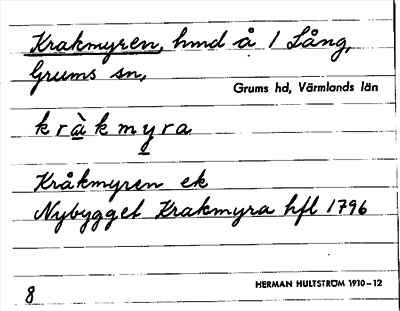 Krakmyren, hmd å 1 Lång,
Grums sn,
Grums hd, Värmlands län
kràkmyra
Kråkmyren ek
Nybygget Krakmyra hfl 1796
HERMAN HULTSTRÖM 1910-12
8